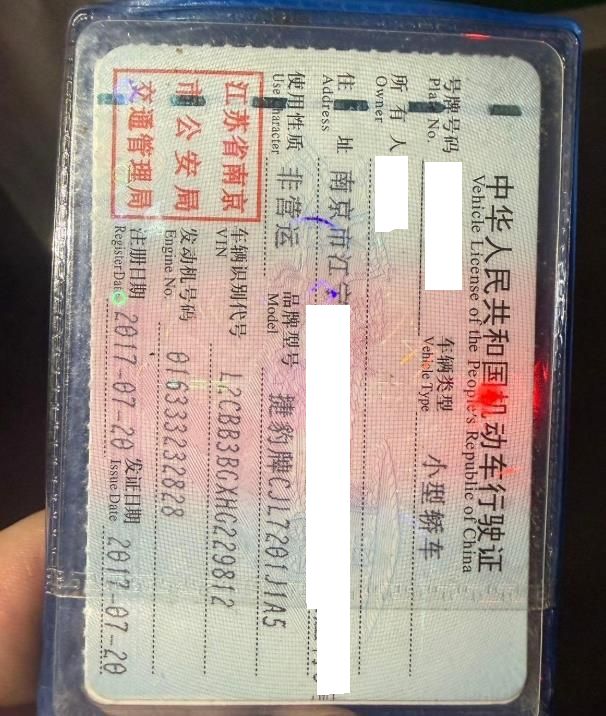 中华人民共和国机动车行驶证
Vehicle License of the People's Republic of China
号牌号码 车辆类型 小型轿车
Plate No. Vehicle Type
所有人
Owner
住 址 南京市江宁
Address
使用性质 非营运 品牌型号 捷豹牌CJL7201J1A5
Use Character Model
江苏省南京
市公安局
交通管理局
车辆识别代号 L2CBB3BGXHG229812
VIN
发动机号码 016333232828
Engine No.
注册日期 2017-07-20 发证日期 2017-07-20
Register Date Issue Date